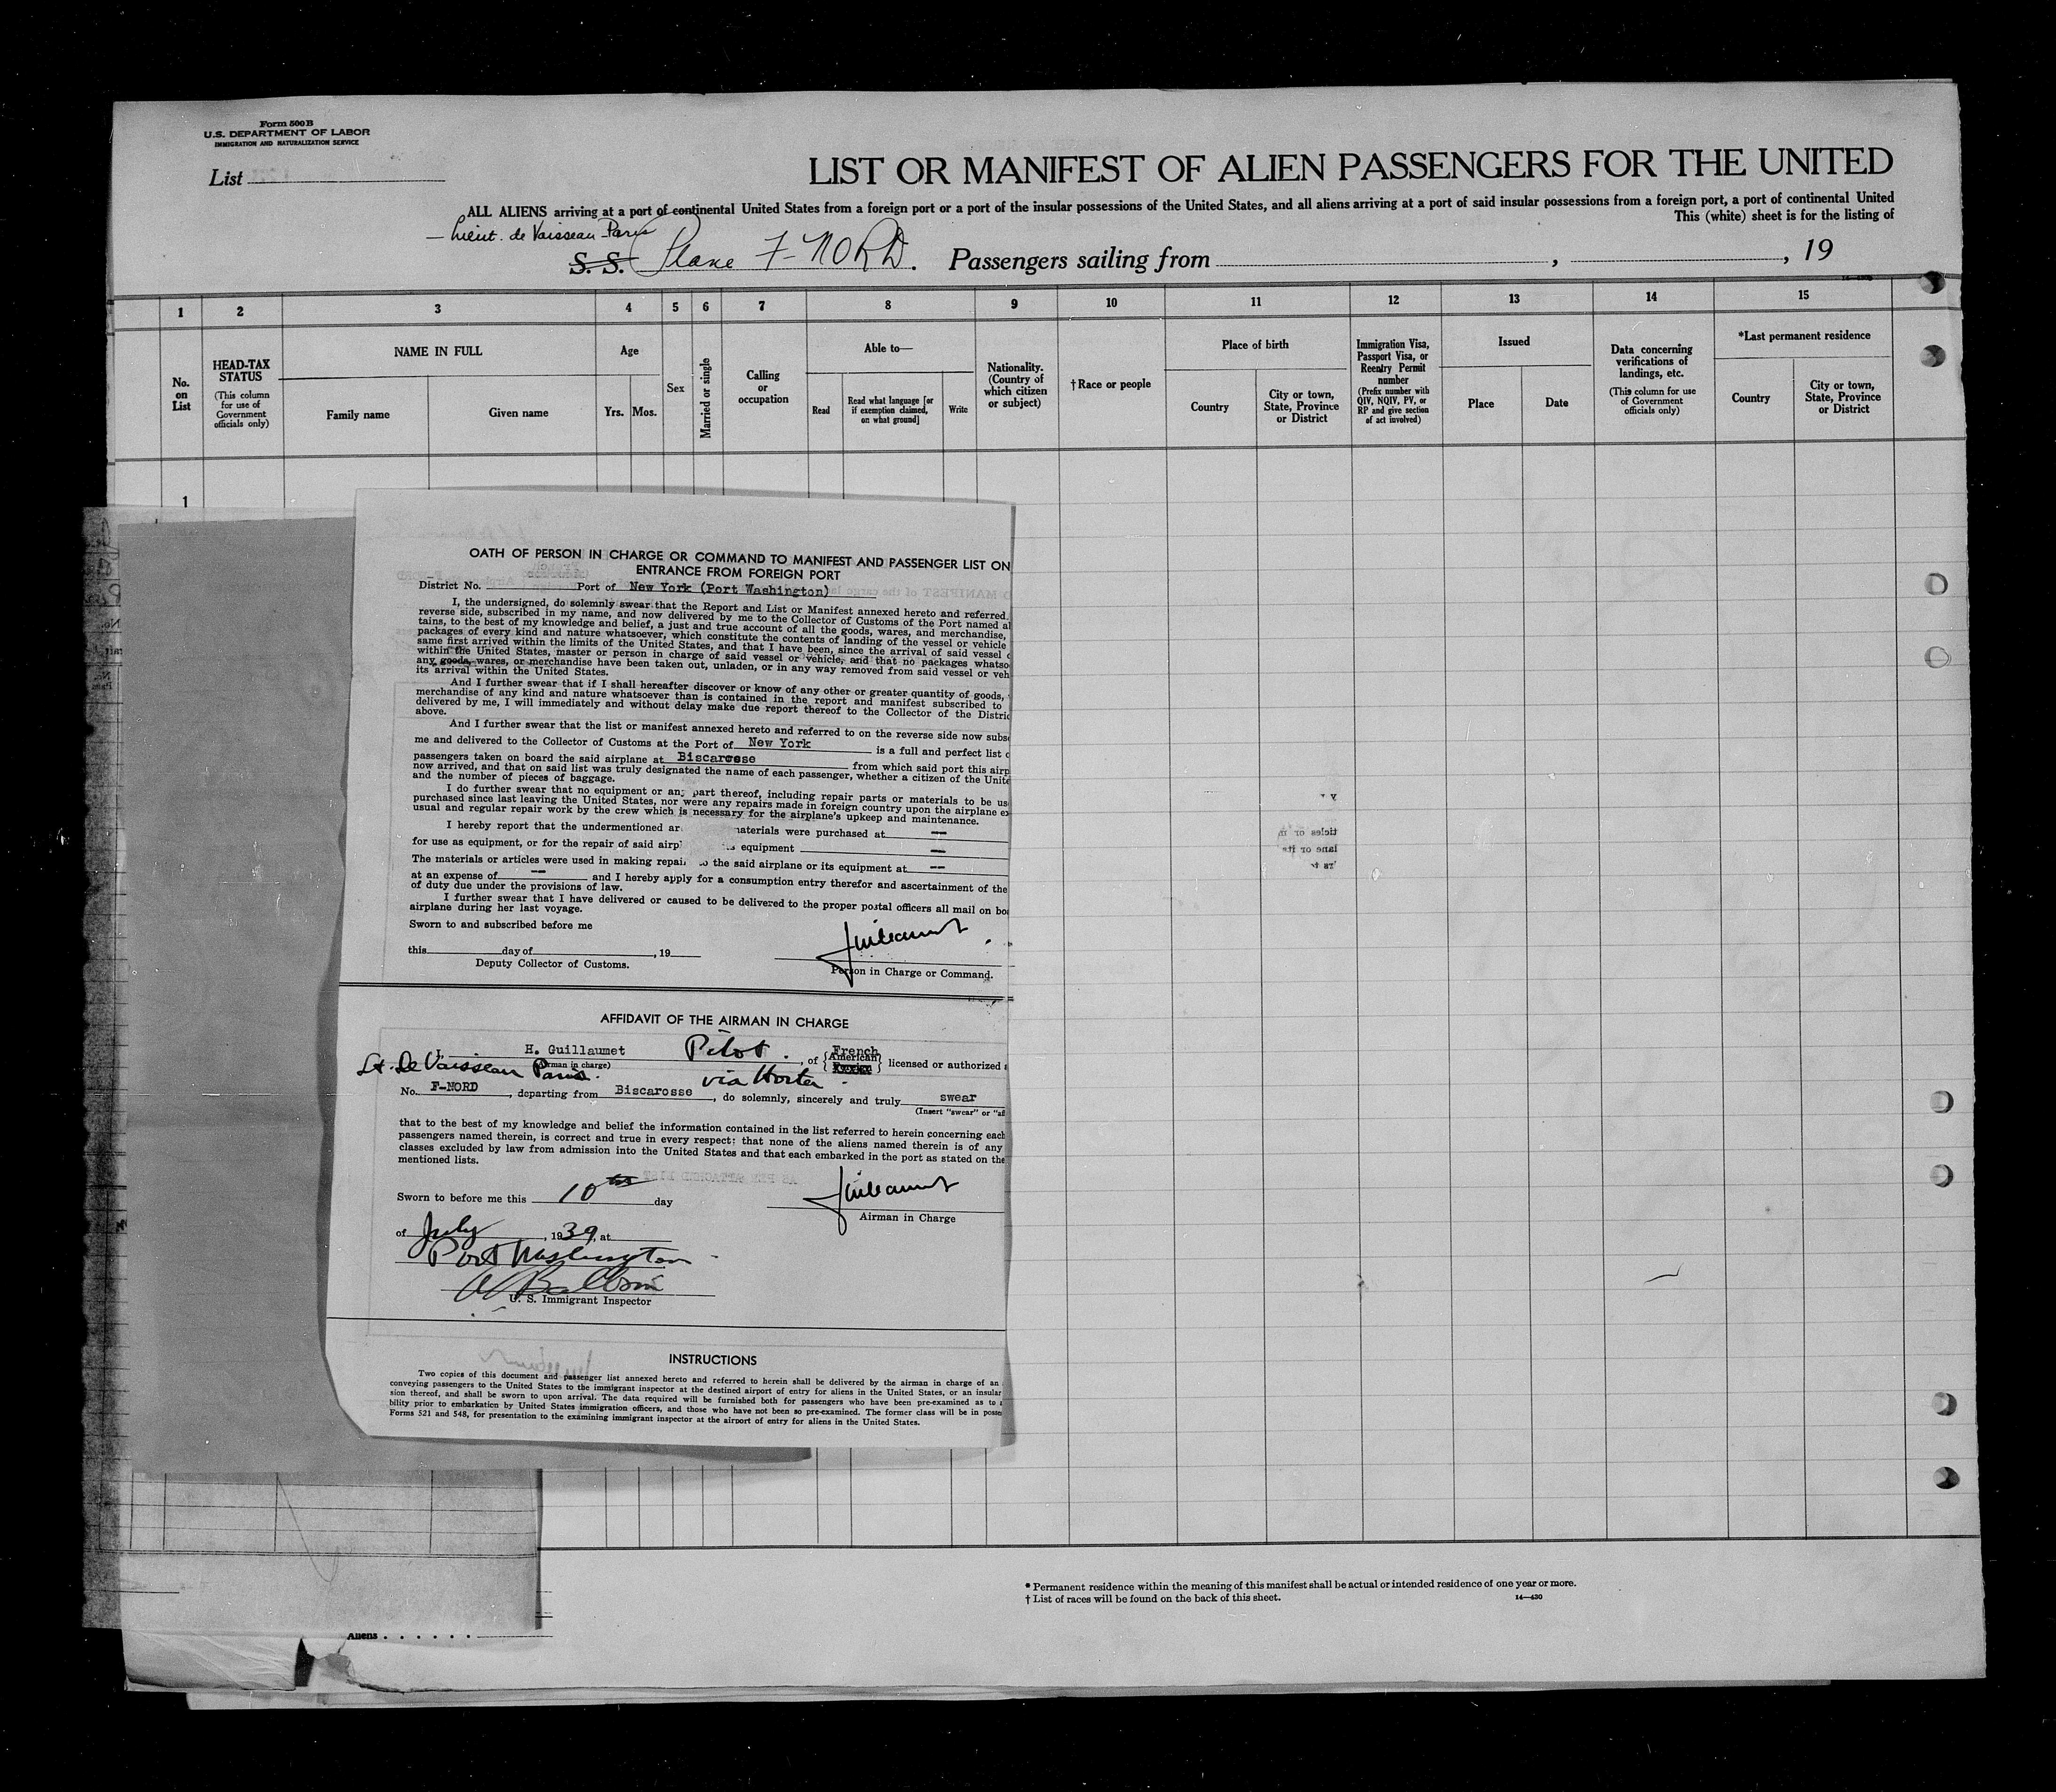 Form 500 B
U.S. DEPARTMENT OF LABOR
IMMIGRATION AND NATURALIZATION SERVICE
List
LIST OR MANIFEST OF ALIEN PASSENGERS FOR THE UNITED
ALL ALIENS arriving at a port of continental United States from a foreign port or a port of the insular possessions of the United States, and all aliens arriving at a port of said insular possessions from a foreign port, a port of continental United
This (white) sheet is for the listing of
— Lieut. de Vaisseau - Paris
S. S. Plane F-NORD. Passengers sailing from , , 19
1 2 3 4 5 6 7 8 9 10 11 12 13 14 15
No. on List
HEAD-TAX STATUS (This column for use of Government officials only)
NAME IN FULL
Family name
Given name
Age
Yrs. Mos.
Sex
Married or single
Calling or occupation
Able to—
Read
Read what language [or if exemption claimed, on what ground]
Write
Nationality. (Country of which citizen or subject)
† Race or people
Place of birth
Country
City or town, State, Province or District
Immigration Visa, Passport Visa, or Reentry Permit number (Prefix number with QIV, NQIV, PV, or RP and give section of act involved)
Issued
Place
Date
Data concerning verifications of landings, etc. (This column for use of Government officials only)
*Last permanent residence
Country
City or town, State, Province or District
1
OATH OF PERSON IN CHARGE OR COMMAND TO MANIFEST AND PASSENGER LIST ON
ENTRANCE FROM FOREIGN PORT
District No. Port of New York (Port Washington)
I, the undersigned, do solemnly swear that the Report and List or Manifest annexed hereto and referred
reverse side, subscribed in my name, and now delivered by me to the Collector of Customs of the Port named a
tains, to the best of my knowledge and belief, a just and true account of all the goods, wares, and merchandise,
packages of every kind and nature whatsoever, which constitute the contents of landing of the vessel or vehicle
same first arrived within the limits of the United States, and that I have been, since the arrival of said vessel
within the United States, master or person in charge of said vessel or vehicle, and that no packages whatso
any goods, wares, or merchandise have been taken out, unladen, or in any way removed from said vessel or veh
its arrival within the United States.
And I further swear that if I shall hereafter discover or know of any other or greater quantity of goods,
merchandise of any kind and nature whatsoever than is contained in the report and manifest subscribed to
delivered by me, I will immediately and without delay make due report thereof to the Collector of the Distric
above.
And I further swear that the list or manifest annexed hereto and referred to on the reverse side now subs
me and delivered to the Collector of Customs at the Port of New York is a full and perfect list
passengers taken on board the said airplane at Biscarosse from which said port this airp
now arrived, and that on said list was truly designated the name of each passenger, whether a citizen of the Unite
and the number of pieces of baggage.
I do further swear that no equipment or any part thereof, including repair parts or materials to be us
purchased since last leaving the United States, nor were any repairs made in foreign country upon the airplane ex
usual and regular repair work by the crew which is necessary for the airplane's upkeep and maintenance.
I hereby report that the undermentioned ar aterials were purchased at —
for use as equipment, or for the repair of said airpl equipment —
The materials or articles were used in making repai o the said airplane or its equipment at --
at an expense of -- and I hereby apply for a consumption entry therefor and ascertainment of the
of duty due under the provisions of law.
I further swear that I have delivered or caused to be delivered to the proper postal officers all mail on bo
airplane during her last voyage.
Sworn to and subscribed before me
this day of , 19
Deputy Collector of Customs.
Guillaumet
Person in Charge or Command.
AFFIDAVIT OF THE AIRMAN IN CHARGE
I, H. Guillaumet Pilot. , of {French American} licensed or authorized
(Airman in charge)
Lt. De Vaisseau Paris. via Horta
No. F-NORD , departing from Biscarosse , do solemnly, sincerely and truly swear
(Insert "swear" or "af
that to the best of my knowledge and belief the information contained in the list referred to herein concerning each
passengers named therein, is correct and true in every respect; that none of the aliens named therein is of any
classes excluded by law from admission into the United States and that each embarked in the port as stated on the
mentioned lists.
Sworn to before me this 10th day
Guillaumet
Airman in Charge
of July , 1939, at
Port Washington
U. S. Immigrant Inspector
INSTRUCTIONS
Two copies of this document and passenger list annexed hereto and referred to herein shall be delivered by the airman in charge of an
conveying passengers to the United States to the immigrant inspector at the destined airport of entry for aliens in the United States, or an insular
sion thereof, and shall be sworn to upon arrival. The data required will be furnished both for passengers who have been pre-examined as to
bility prior to embarkation by United States immigration officers, and those who have not been so pre-examined. The former class will be in posse
Forms 521 and 548, for presentation to the examining immigrant inspector at the airport of entry for aliens in the United States.
* Permanent residence within the meaning of this manifest shall be actual or intended residence of one year or more.
† List of races will be found on the back of this sheet.
14—430
Aliens . . . . . .